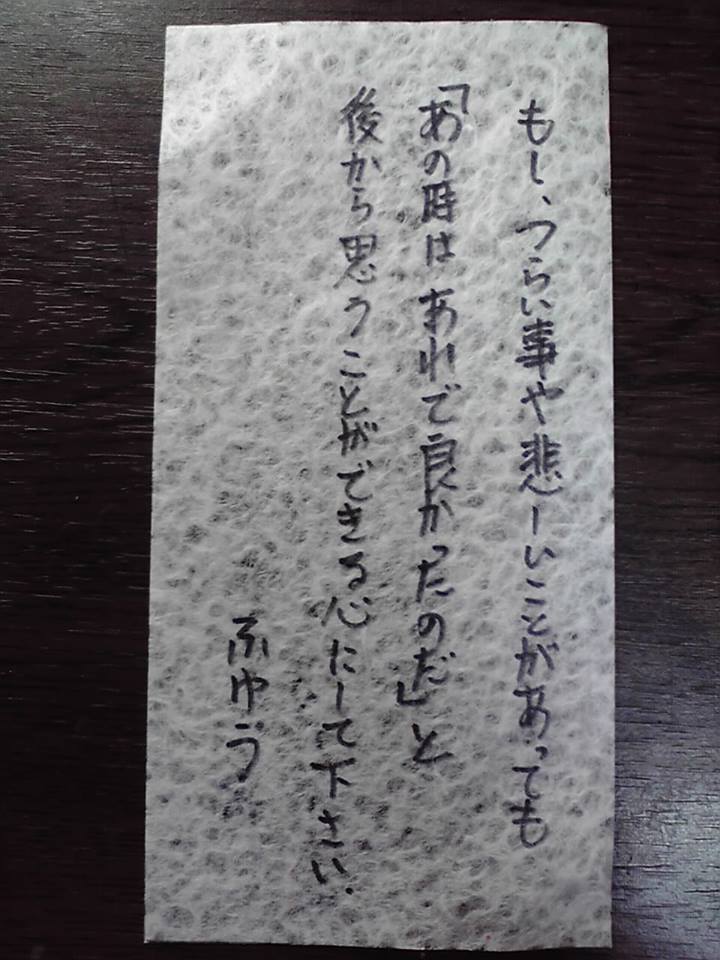 もし、つらい事や悲しいことがあっても
「あの時はあれで良かったのだ」と
後から思うことができる心にして下さい.
ふゆう